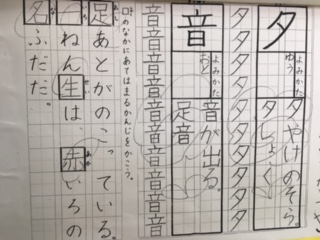 夕
よみかた
ゆう
夕やけのそら
夕しょく
夕夕夕夕夕夕夕夕夕夕
音
よみかた
おと
音が出る。
足音
音音音音音音音音音音
□のなかにあてはまるかんじをかこう。
あし
足あとがのこっている。
一ねん生は、赤いろの
せい
あか
名ふだだ。
な